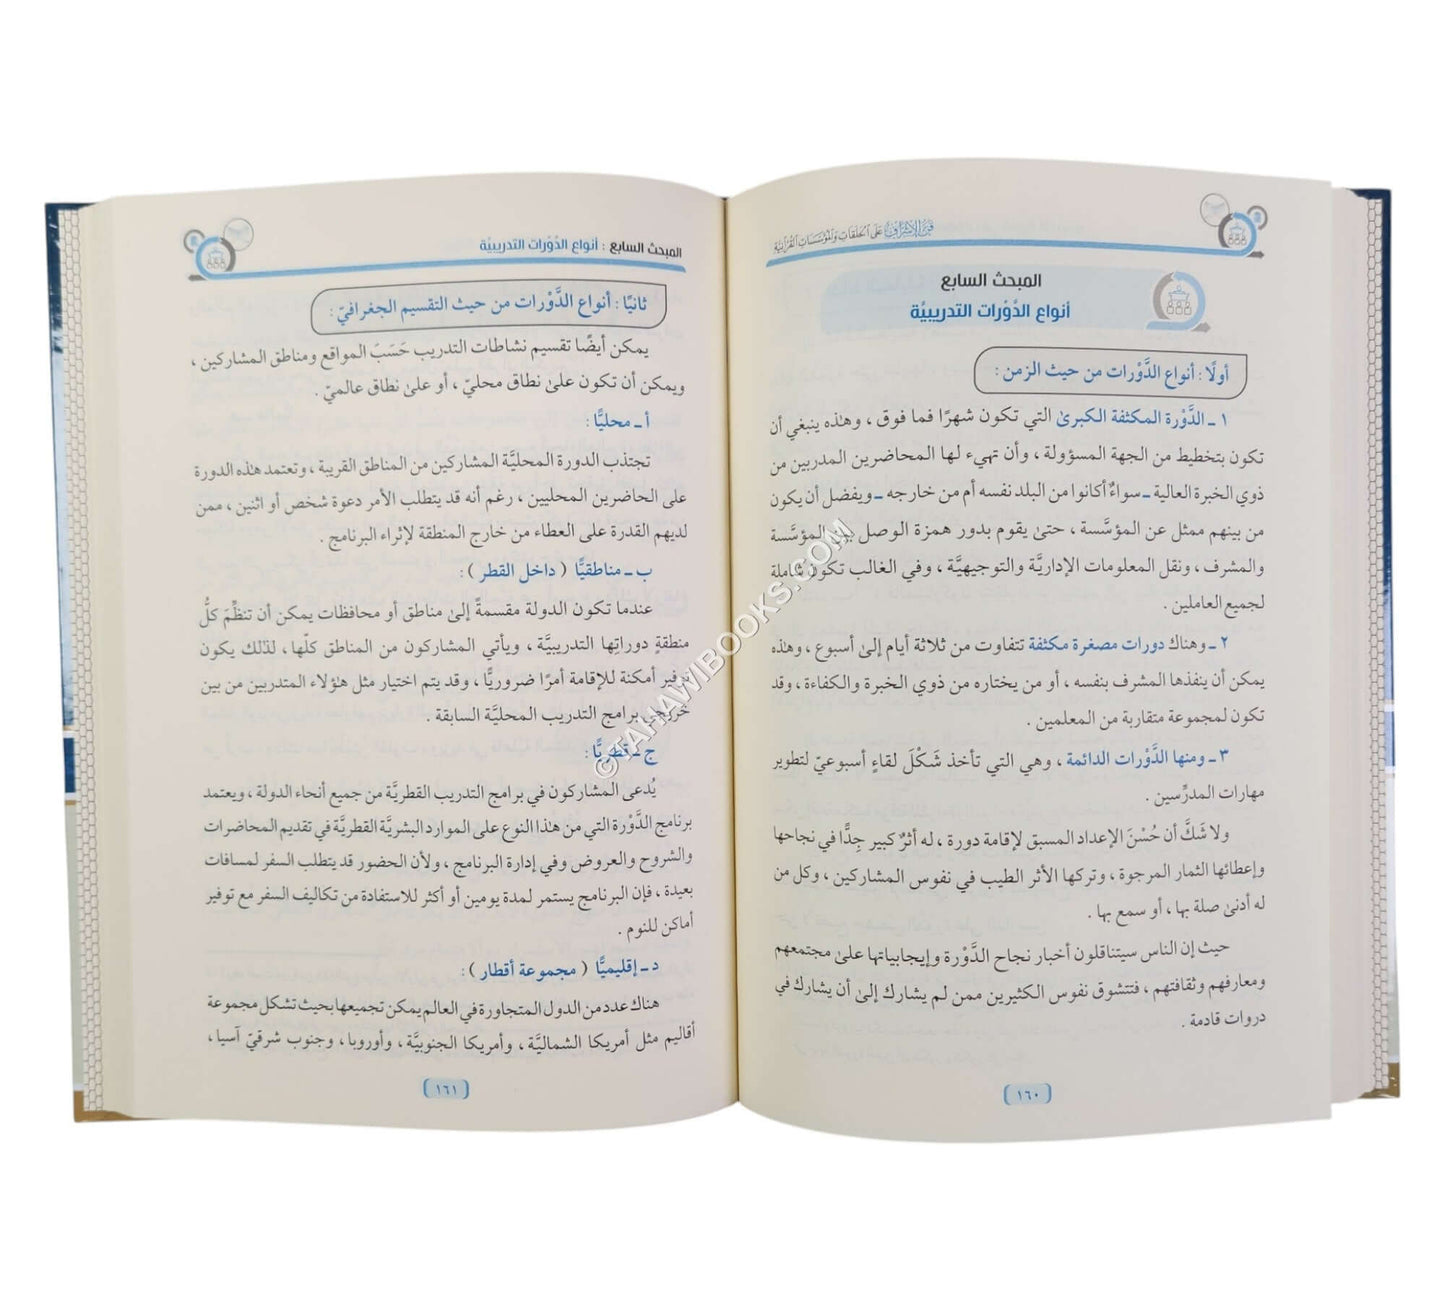 فن الإشراف على الحلقات والمؤسسات القرآنية
المبحث السابع
أنواع الدَّوْرات التدريبيَّة
أولًا : أنواع الدَّوْرات من حيث الزمن :
١ ـ الدَّوْرة المكثفة الكبرىٰ التي تكون شهرًا فما فوق ، وهٰذه ينبغي أن
تكون بتخطيط من الجهة المسؤولة ، وأن تهيء لها المحاضرين المدربين من
ذوي الخبرة العالية ـ سواءٌ أكانوا من البلد نفسه أم من خارجه ـ ويفضل أن يكون
من بينهم ممثل عن المؤسَّسة ، حتىٰ يقوم بدور همزة الوصل بين المؤسَّسة
والمشرف ، ونقل المعلومات الإداريَّة والتوجيهيَّة ، وفي الغالب تكون شاملة
لجميع العاملين .
٢ ـ وهناك دورات مصغرة مكثفة تتفاوت من ثلاثة أيام إلىٰ أسبوع ، وهٰذه
يمكن أن ينفذها المشرف بنفسه ، أو من يختاره من ذوي الخبرة والكفاءة ، وقد
تكون لمجموعة متقاربة من المعلمين .
٣ ـ ومنها الدَّوْرات الدائمة ، وهي التي تأخذ شَكْلَ لقاءٍ أسبوعيّ لتطوير
مهارات المدرِّسين .
ولا شَكَّ أن حُسْنَ الإعداد المسبق لإقامة دورة ، له أثرٌ كبير جِدًّا في نجاحها
وإعطائها الثمار المرجوة ، وتركها الأثر الطيب في نفوس المشاركين ، وكل من
له أدنىٰ صلة بها ، أو سمع بها .
حيث إن الناس سيتناقلون أخبار نجاح الدَّوْرة وإيجابياتها علىٰ مجتمعهم
ومعارفهم وثقافتهم ، فتتشوق نفوس الكثيرين ممن لم يشارك إلىٰ أن يشارك في
دروات قادمة .
١٦٠
المبحث السابع : أنواع الدَّوْرات التدريبيَّة
ثانيًا : أنواع الدَّوْرات من حيث التقسيم الجغرافيّ :
يمكن أيضًا تقسيم نشاطات التدريب حَسَبَ المواقع ومناطق المشاركين ،
ويمكن أن تكون علىٰ نطاق محليّ ، أو علىٰ نطاق عالميّ .
أ ـ محليًّا :
تجتذب الدورة المحليَّة المشاركين من المناطق القريبة ، وتعتمد هٰذه الدورة
على الحاضرين المحليين ، رغم أنه قد يتطلب الأمر دعوة شخص أو اثنين ، ممن
لديهم القدرة على العطاء من خارج المنطقة لإثراء البرنامج .
ب ـ مناطقيًّا ( داخل القطر ) :
عندما تكون الدولة مقسمةً إلىٰ مناطق أو محافظات يمكن أن تنظِّمَ كلُّ
منطقةٍ دوراتِها التدريبيَّة ، ويأتي المشاركون من المناطق كلّها ، لذٰلك يكون
توفير أمكنة للإقامة أمرًا ضروريًّا ، وقد يتم اختيار مثل هٰؤلاء المتدربين من بين
خريجي برامج التدريب المحليَّة السابقة .
ج ـ قطريًّا :
يُدعى المشاركون في برامج التدريب القطريَّة من جميع أنحاء الدولة ، ويعتمد
برنامج الدَّوْرة التي من هٰذا النوع على الموارد البشريَّة القطريَّة في تقديم المحاضرات
والشروح والعروض وفي إدارة البرنامج ، ولأن الحضور قد يتطلب السفر لمسافات
بعيدة ، فإن البرنامج يستمر لمدة يومين أو أكثر للاستفادة من تكاليف السفر مع توفير
أماكن للنوم .
د ـ إقليميًّا ( مجموعة أقطار ) :
هناك عدد من الدول المتجاورة في العالم يمكن تجميعها بحيث تشكل مجموعة
أقاليم مثل أمريكا الشماليَّة ، وأمريكا الجنوبيَّة ، وأوروبا ، وجنوب شرقيّ آسيا ،
١٦١
© TAHAWIBOOKS.COM